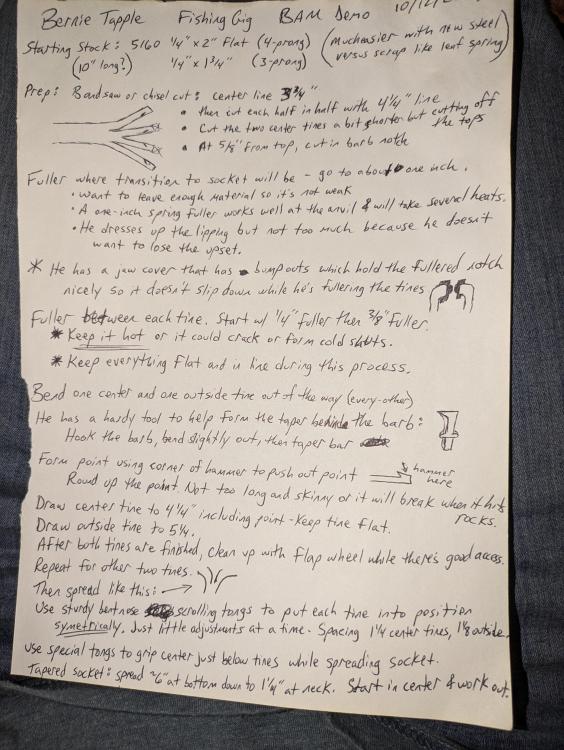 Bernie Tapple Fishing Gig BAM Demo 10/12/
Starting Stock: 5160 1/4" x 2" Flat (4-prong) (Much easier with new steel
(10" long?) 1/4" x 1 3/4" (3-prong) versus scrap like leaf spring)
Prep: Bandsaw or chisel cut: center line 3 3/4"
• then cut each half in half with 4 1/4" line
• Cut the two center tines a bit shorter but cutting off the tops
• At 5/8" from top, cut in barb notch
Fuller where transition to socket will be - go to about one inch.
• Want to leave enough material so it's not weak
• A one-inch spring fuller works well at the anvil & will take several heats.
• He dresses up the lipping but not too much because he doesn't
want to lose the upset.
* He has a jaw cover that has bumpouts which hold the fullered notch
nicely so it doesn't slip down while he's fullering the tines
Fuller between each tine. Start w/ 1/4" fuller then 3/8" fuller.
* Keep it hot or it could crack or form cold shuts.
* Keep everything flat and in line during this process.
Bend one center and one outside tine out of the way (every-other)
He has a hardy tool to help form the taper behind the barb:
Hook the barb, bend slightly out, then taper bar
Form point using corner of hammer to push out point hammer here
Round up the point. Not too long and skinny or it will break when it hits rocks.
Draw center tine to 4 1/4" including point - Keep tine flat.
Draw outside tine to 5 1/4.
After both tines are finished, clean up with flap wheel while there's good access.
Repeat for other two tines.
Then spread like this: →
Use sturdy bentnose scrolling tongs to put each tine into position
symetrically. Just little adjustments at a time. Spacing 1 1/4 center tines, 1 1/8 outside.
Use special tongs to grip center just below tines while spreading socket.
Tapered socket: spread ~6" at bottom down to 1 1/4" at neck. Start in center & work out.